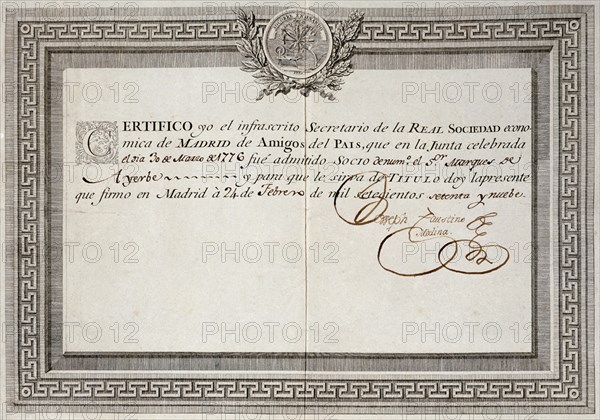 CERTIFICO yo el infrascrito Secretario de la REAL SOCIEDAD econo-
mica de MADRID de Amigos del PAIS, que en la Junta celebrada
el dia 30 de Marzo de 1776 fué admitido SOCIO de num.º el S.or Marques de
Ayerbe y para que le sirva de TITULO doy la presente
que firmo en Madrid à 24 de Febrero de mil setecientos setenta y nuebe.
Joseph Faustino
Medina
PHOTO 12